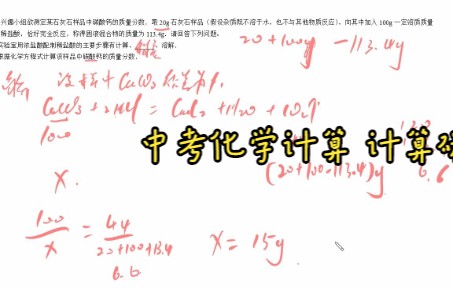 兴趣小组欲测定某石灰石样品中碳酸钙的质量分数。取 20g 石灰石样品(假设杂质既不溶于水,也不与其他物质反应),向其中加入 100g 一定溶质质量
稀盐酸,恰好完全反应,称得固液混合物的质量为 113.4g。请回答下列问题。
实验室用浓盐酸配制稀盐酸的主要步骤有计算、 溶解.
根据化学方程式计算该样品中碳酸钙的质量分数。
20+100g -113.4g
CaCO₃ + 2HCl = CaCl₂ + H₂O + CO₂↑
100
中考化学计算 计算碳
x
(20+100-113.4)g
6.6
100/x = 44/20+100-113.4
6.6
x = 15g